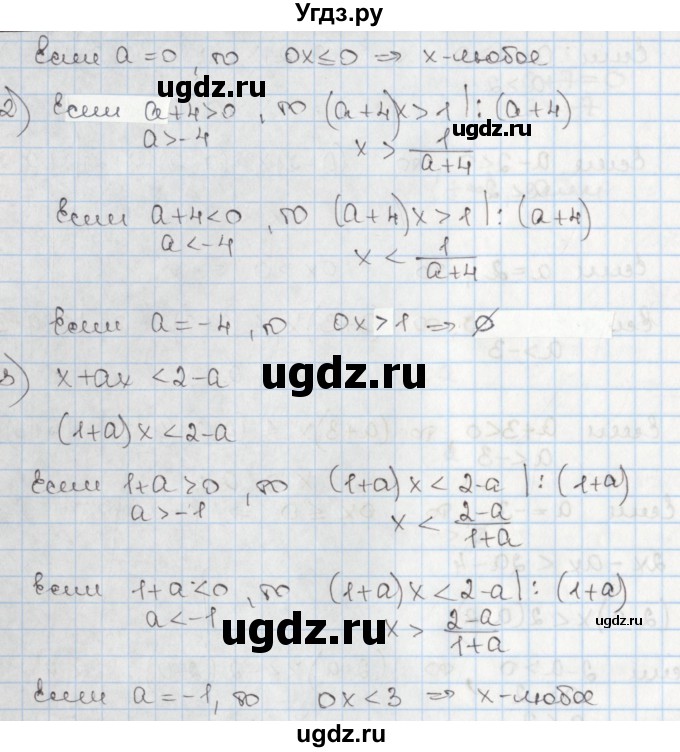 Угдз.ру
Если a=0, то 0x≤0 ⇒ x-любое
2) Если a+4>0, то (a+4)x>1 |: (a+4)
a>-4 x > 1/(a+4)
ugdz.ru
Если a+4<0, то (a+4)x>1 |: (a+4)
a<-4 x < 1/(a+4)
ugdz.ru
Если a=-4, то 0x>1 ⇒ ∅
ugdz.ru
) x+ax <2-a
ugdz.ru
(1+a)x<2-a
Если 1+a>0, то (1+a)x< 2-a |: (1+a)
ugdz.ru
a>-1 x < (2-a)/(1+a)
Если 1+a<0, то (1+a)x<2-a |: (1+a)
a<-1 x > (2-a)/(1+a)
ugdz.ru
ugdz.ru
Если a=-1, то 0x<3 ⇒ x-любое
ugdz.ru